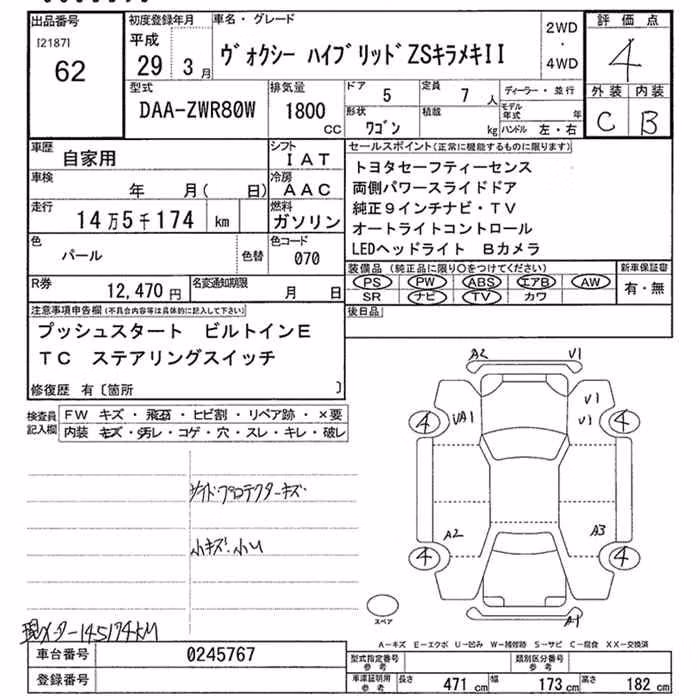 出品番号 初度登録年月 車名・グレード 2WD・4WD 評価点
[2187] 62 平成 29 3月 ヴォクシー ハイブリッドZSキラメキII 4
型式 排気量 ドア 5 定員 7人 ディーラー・並行 外装 内装
DAA-ZWR80W 1800cc 形状 ワゴン 積載 kg モデル年式 年 ハンドル 左・右 C B
車歴 自家用 シフト IAT セールスポイント(正常に機能するものに限ります)
車検 年 月( 日) 冷房 AAC トヨタセーフティーセンス
両側パワースライドドア
走行 14万5千174 km 燃料 ガソリン 純正9インチナビ・TV
オートライトコントロール
色 パール 色替 色コード 070 LEDヘッドライト Bカメラ
R券 12,470円 名変通知期限 月 日 装備品(純正品に限り○をつけてください) 新車保証書
PS PW ABS エアB AW 有・無
SR ナビ TV カワ
注意事項申告欄(不具合内容等は具体的に記入して下さい) 後日品
プッシュスタート ビルトインE
TC ステアリングスイッチ
修復歴 有〔箇所 〕
検査員記入欄 FW キズ・飛石・ヒビ割・リペア跡・×要
内装 キズ・汚レ・コゲ・穴・スレ・キレ・破レ
A2 V1
V1
4 UA1 V1 4
サイドプロテクターキズ
小キズ.小U
A2 A3
4 4
スペア
A1
現メーター145174KM
A-キズ E-エクボ U-凹み W-補修跡 S-サビ C-腐食 XX-交換済
車台番号 0245767 型式指定番号参考 類別区分番号参考
登録番号 車庫証明用参考 長さ 471cm 幅 173cm 高さ 182cm